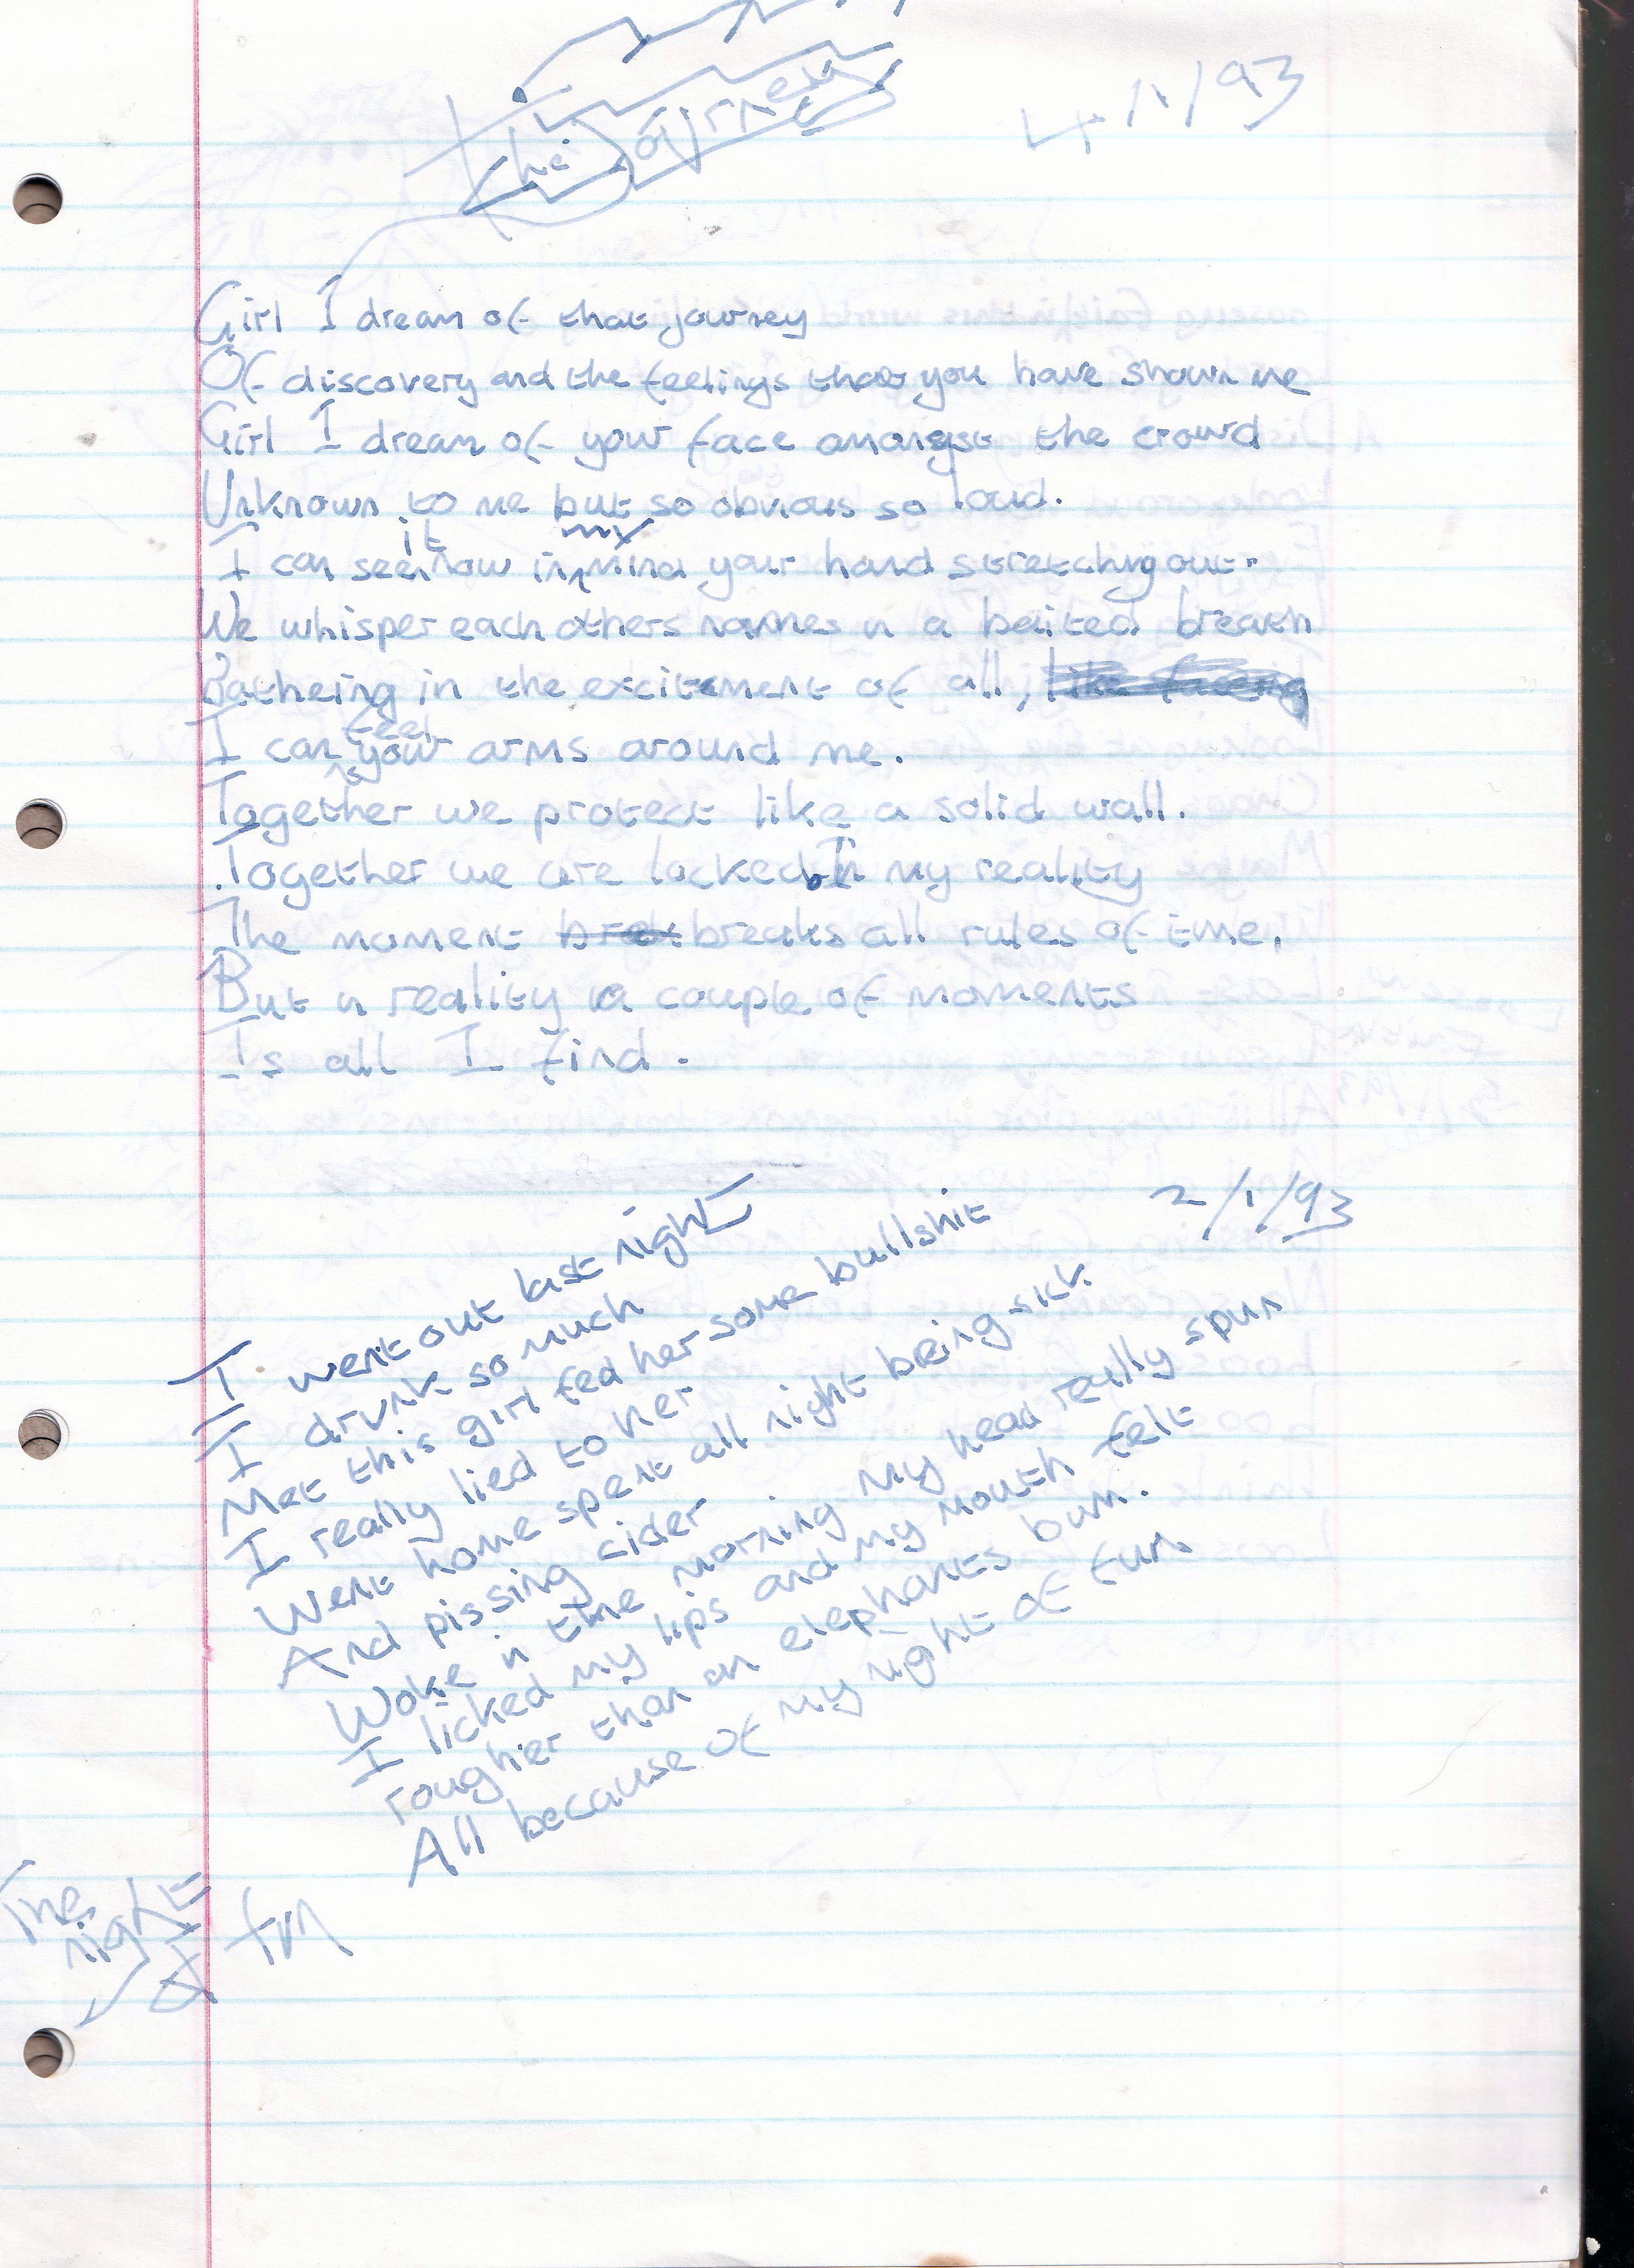 The Journey
4/1/93
Girl I dream of that journey
Of discovery and the feelings that you have shown me
Girl I dream of your face amongst the crowd
Unknown to me but so obvious so loud.
I can see it now in my mind your hand stretching out.
We whisper each others names in a baited breath
Batheing in the excitement of all,
I can feel your arms around me.
Together we protect like a solid wall.
Together we are locked In my reality
The moment breaks all rules of time.
But in reality a couple of moments
Is all I find.
2/1/93
I went out last night
I drunk so much
Met this girl fed her some bullshit
I really lied to her
Went home spent all night being sick
And pissing cider
Woke in the morning my head really spun
I licked my lips and my mouth felt
rougher than an elephants bum.
All because of my night of fun
The night of fun